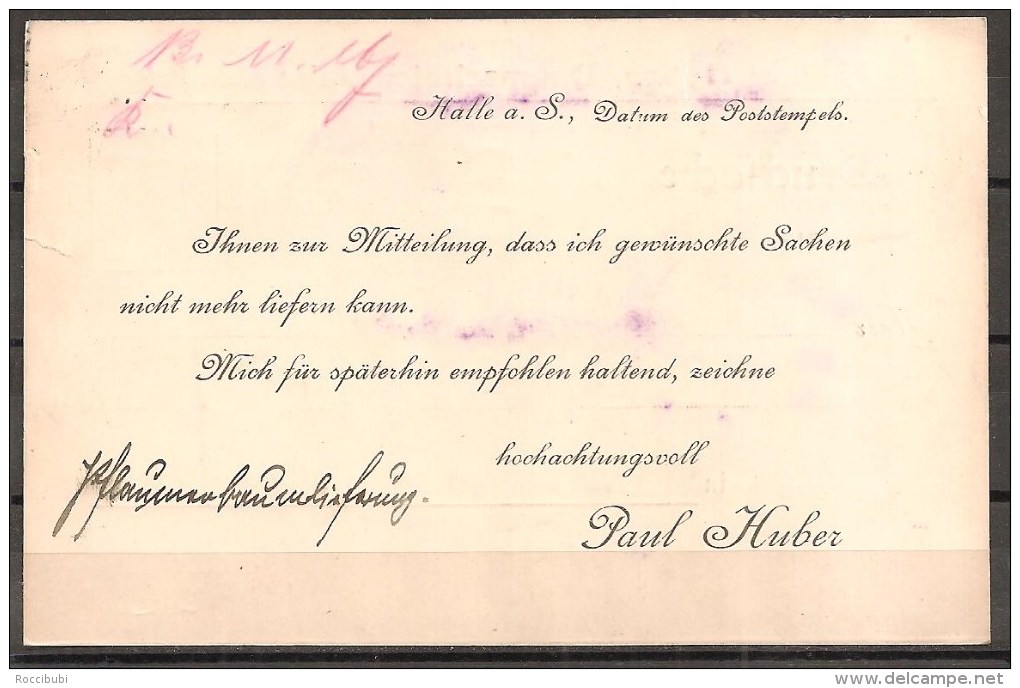 Halle a. S., Datum des Poststempels.
Ihnen zur Mitteilung, dass ich gewünschte Sachen
nicht mehr liefern kann.
Mich für späterhin empfohlen haltend, zeichne
hochachtungsvoll
Pflaumenbaumlieferung.
Paul Huber
Roccibubi
delcampe.net